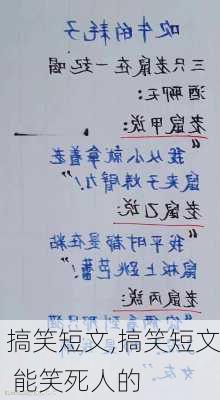 吹牛的耗子
三只老鼠在一起喝
酒聊天:
老鼠甲说:
"我从小就拿着老
鼠夹子练臂力!"
老鼠乙说:
"我平时都是在粘
鼠板上跳芭蕾!"
老鼠丙说:
"你俩看到那只猫
女友"
搞笑短文,搞笑短文
能笑死人的